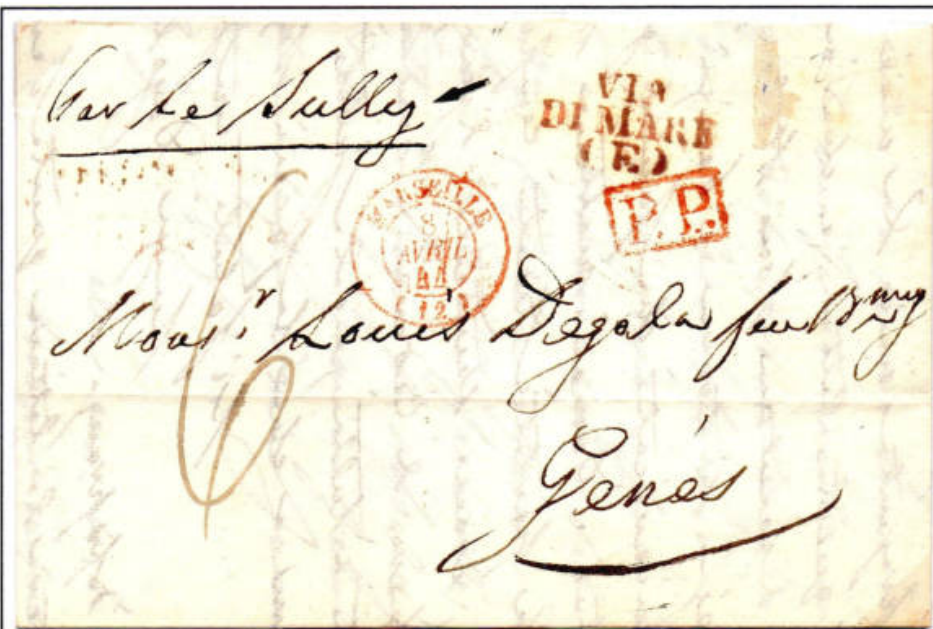 Par le Sully
VIA
DI MARE
(E)
P.P.
MARSEILLE
8
AVRIL
44
(12)
6
Mons.r Louis Degola
Gênes